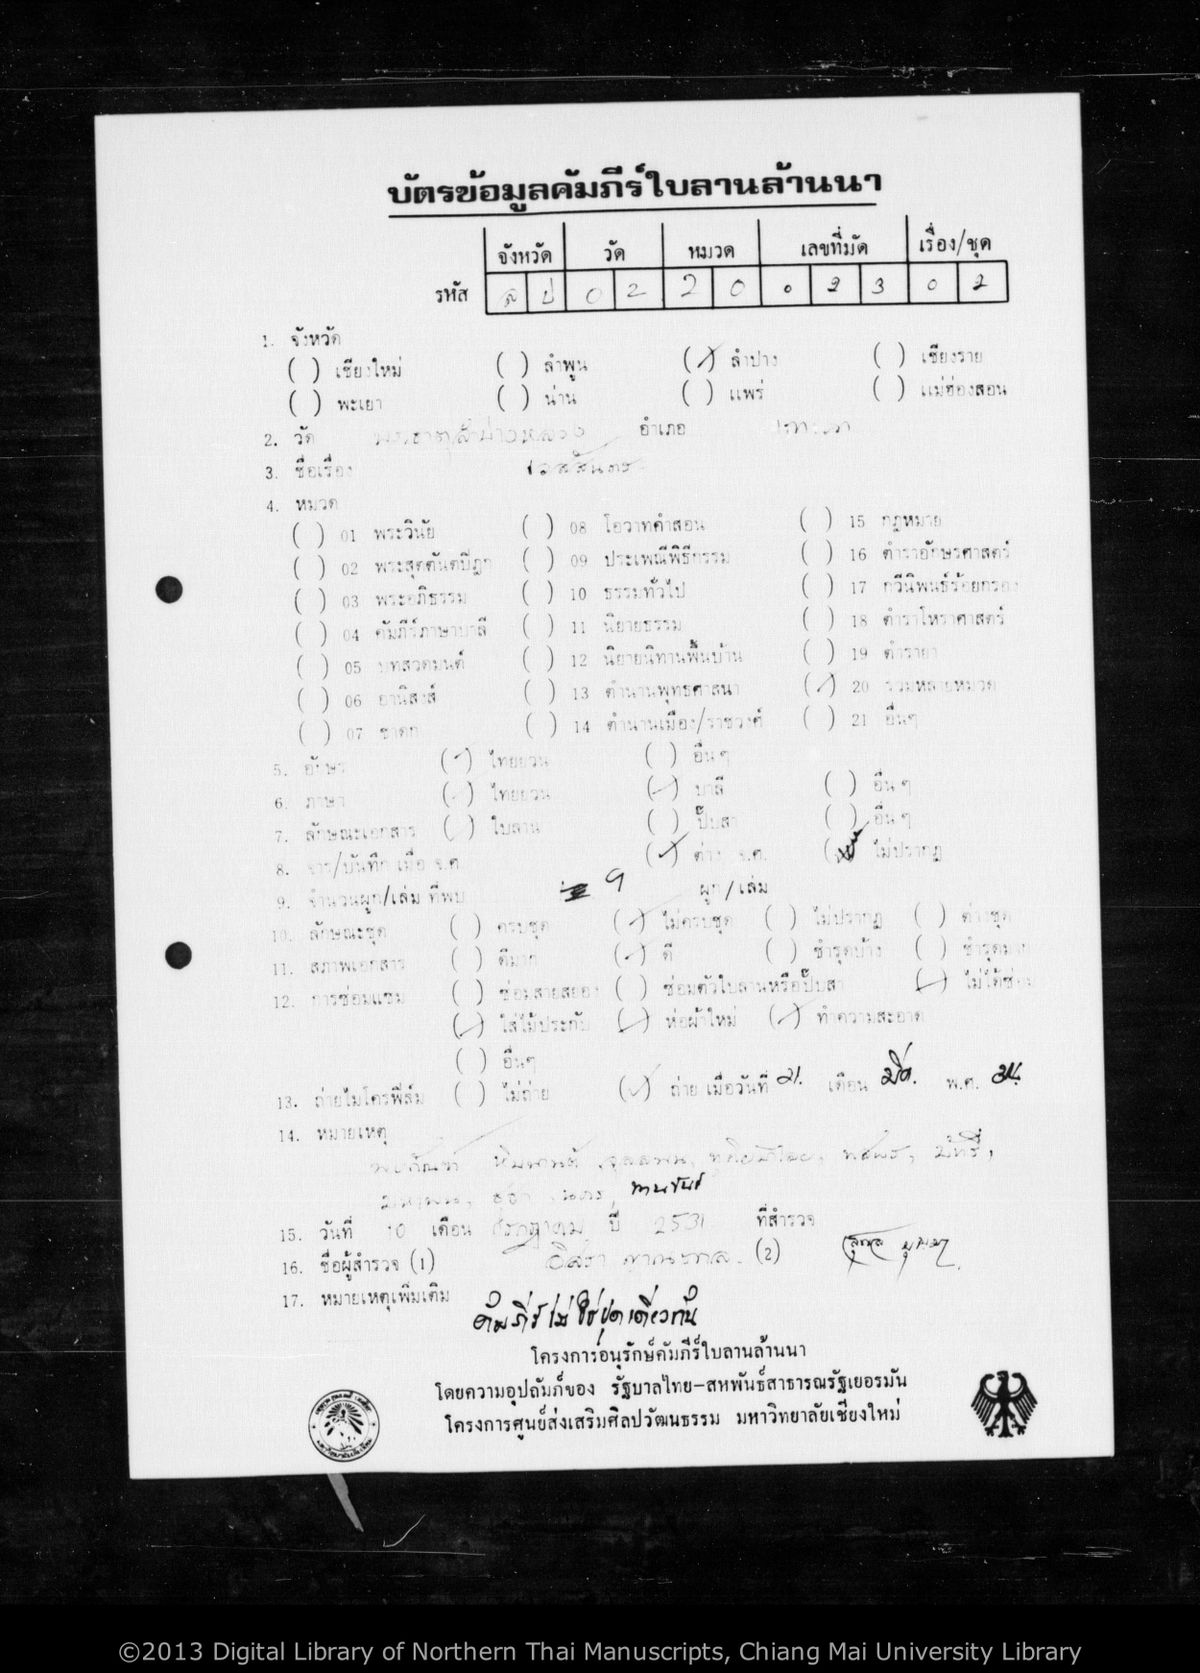 บัตรข้อมูลคัมภีร์ใบลานล้านนา
จังหวัด วัด หมวด เลขที่มัด เรื่อง/ชุด
รหัส ลป 02 20 023 02
1. จังหวัด
( ) เชียงใหม่ ( ) ลำพูน (/) ลำปาง ( ) เชียงราย
( ) พะเยา ( ) น่าน ( ) แพร่ ( ) แม่ฮ่องสอน
2. วัด พระธาตุลำปางหลวง อำเภอ เกาะคา
3. ชื่อเรื่อง เวสสันตร
4. หมวด
( ) 01 พระวินัย ( ) 08 โอวาทคำสอน ( ) 15 กฎหมาย
( ) 02 พระสุตตันตปิฎก ( ) 09 ประเพณีพิธีกรรม ( ) 16 ตำราอักษรศาสตร์
( ) 03 พระอภิธรรม ( ) 10 ธรรมทั่วไป ( ) 17 กวีนิพนธ์ร้อยกรอง
( ) 04 คัมภีร์ภาษาบาลี ( ) 11 นิยายธรรม ( ) 18 ตำราโหราศาสตร์
( ) 05 บทสวดมนต์ ( ) 12 นิยายนิทานพื้นบ้าน ( ) 19 ตำรายา
( ) 06 อานิสงส์ ( ) 13 ตำนานพุทธศาสนา (/) 20 รวมหลายหมวด
( ) 07 ชาดก ( ) 14 ตำนานเมือง/ราชวงศ์ ( ) 21 อื่นๆ
5. อักษร (/) ไทยยวน ( ) อื่นๆ
6. ภาษา (/) ไทยยวน (/) บาลี ( ) อื่นๆ
7. ลักษณะเอกสาร (/) ใบลาน ( ) ปั๊บสา ( ) อื่นๆ
8. จาร/บันทึก เมื่อ จ.ศ. (/) ต่าง จ.ศ. ( ) ไม่ปรากฏ
9. จำนวนผูก/เล่ม ที่พบ 9 ผูก/เล่ม
10. ลักษณะชุด ( ) ครบชุด (/) ไม่ครบชุด ( ) ไม่ปรากฏ ( ) ต่างชุด
11. สภาพเอกสาร ( ) ดีมาก (/) ดี ( ) ชำรุดบ้าง ( ) ชำรุดมาก
12. การซ่อมแซม ( ) ซ่อมสายสยอง ( ) ซ่อมตัวใบลานหรือปั๊บสา (/) ไม่ได้ซ่อม
(/) ใส่ไม้ประกับ (/) ห่อผ้าใหม่ (/) ทำความสะอาด
( ) อื่นๆ
13. ถ่ายไมโครฟิล์ม ( ) ไม่ถ่าย (/) ถ่าย เมื่อวันที่ 21. เดือน มิย. พ.ศ.
14. หมายเหตุ
หิมพานต์ จุลลพน, ทสพร, มัทรี,
มหาพน, ทานขันธ์
15. วันที่ 10 เดือน กรกฎาคม ปี 2531 ที่สำรวจ
16. ชื่อผู้สำรวจ (1) อิสรา (2)
17. หมายเหตุเพิ่มเติม
คัมภีร์ไม่ใช่ชุดเดียวกัน
โครงการอนุรักษ์คัมภีร์ใบลานล้านนา
โดยความอุปถัมภ์ของ รัฐบาลไทย-สหพันธ์สาธารณรัฐเยอรมัน
โครงการศูนย์ส่งเสริมศิลปวัฒนธรรม มหาวิทยาลัยเชียงใหม่
©2013 Digital Library of Northern Thai Manuscripts, Chiang Mai University Library